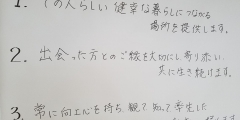 1. その人らしい健幸な暮らしにつながる
場所を提供します。
2. 出会った方とのご縁を大切にし寄り添い
共に生き続けます。
3. 常に向上心を持ち、観て知って考生した